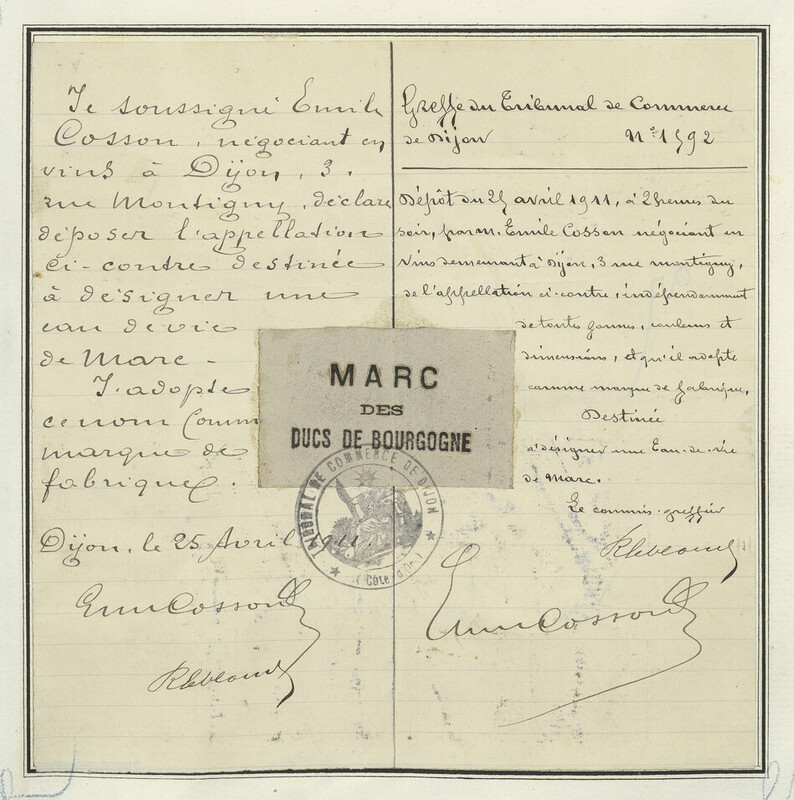 Je soussigné Emile
Cosson, négociant en
vins à Dijon, 3.
rue Montigny, déclare
déposer l'appellation
ci-contre destinée
à désigner une
eau de vie
de Marc -
J'adopte
ce nom Comm
marque de
fabrique.
Dijon, le 25 Avril 1911.
Emile Cosson
Greffe du Tribunal de Commerce
de Dijon N° 1592
Dépôt du 25 avril 1911, à 2 heures du
soir, par M. Emile Cosson négociant en
vins demeurant à Dijon, 3 rue Montigny,
de l'appellation ci-contre, indépendamment
de toutes formes, couleurs et
dimensions, et qu'il adopte
comme marque de fabrique,
Destinée
à désigner une Eau-de-vie
de Marc.
Le commis-greffier
Emile Cosson
MARC
DES
DUCS DE BOURGOGNE
TRIBUNAL DE COMMERCE DE DIJON
(Côte-d'Or)